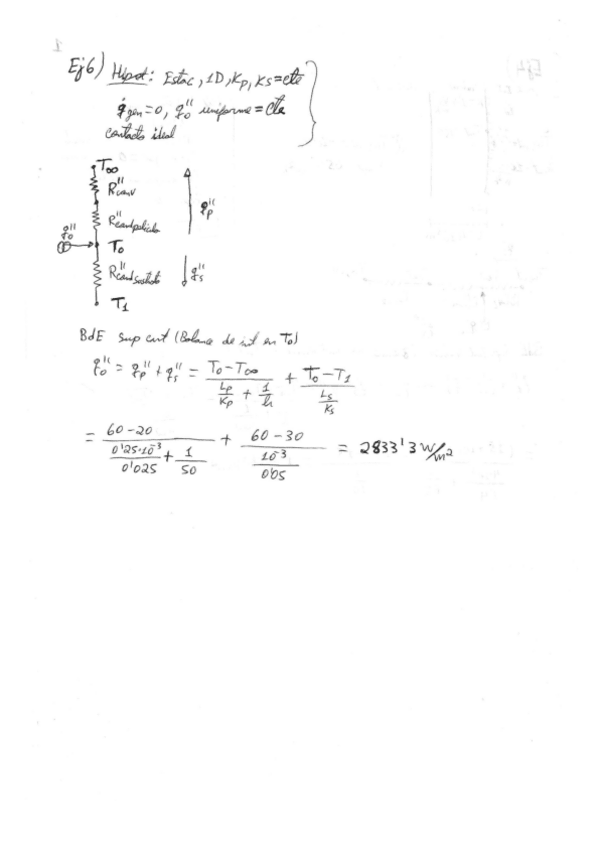 Ej6) Hipot: Estac, 1D, Kp, Ks = cte
q̇gen = 0, q₀'' uniforme = Cte
contacto ideal
T∞
R''conv
R''cond película
q₀''
T₀
R''cond sustrato
T₁
qp''
qs''
BdE sup cont (Balance de int en T₀)
q₀'' = qp'' + qs'' = (T₀ - T∞)/(Lp/Kp + 1/h) + (T₀ - T₁)/(Ls/Ks)
= (60 - 20)/(0'25·10⁻³/0'025 + 1/50) + (60 - 30)/(10⁻³/0'05) = 2833'3 W/m²